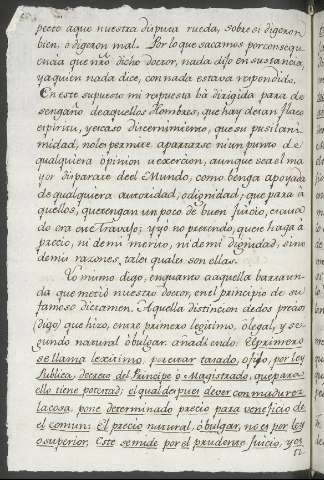 pecto aque nuestra disputa rueda, sobre si digeron
bien, o digeron mal. Por lo que sacamos por consequ
encia que nro dicho Doctor, nada dijo en sustancia,
ya quien nada dice, con nada estava respondido.
En este supuesto mi respuesta bá dirigida para de
sengaño de aquellos Hombres, que hay de tan flaco
espiritu, y escaso discernimiento, que su pusilani
midad, no les permite apartarse ni un punto de
qualquiera opinion u exercion, aunque sea el ma
yor disparate de el Mundo, como benga apoyada
de qualquiera autoridad, o dignidad; que para a
quellos, que tengan un poco de buen juicio, escusa
do era este Travajo; y yó no pretendo, que se haga a
precio, ni de mi merito, ni de mi dignidad, sino
de mis razones, tales quales son ellas.
Yo mismo digo, en quanto a aquella barraun
da que metió nuestro Doctor, en el principio de su
famoso dictamen. Aquella distincion de dos precios
digo que hizo, entre primero legitimo, ó legal, y se
gundo natural ó bulgar. anadiendo: El primero
se llama lexitimo, por estar tasado, o fijo, por ley
Publica, decreto del Principe o Magistrado, que para
ello tiene potestad; el qual despues de ver con madurez
la cosa, pone determinado precio para veneficio de
el comun: El precio natural, ó bulgar, no es por ley
o superior. Este se mide por el prudente juicio, y es